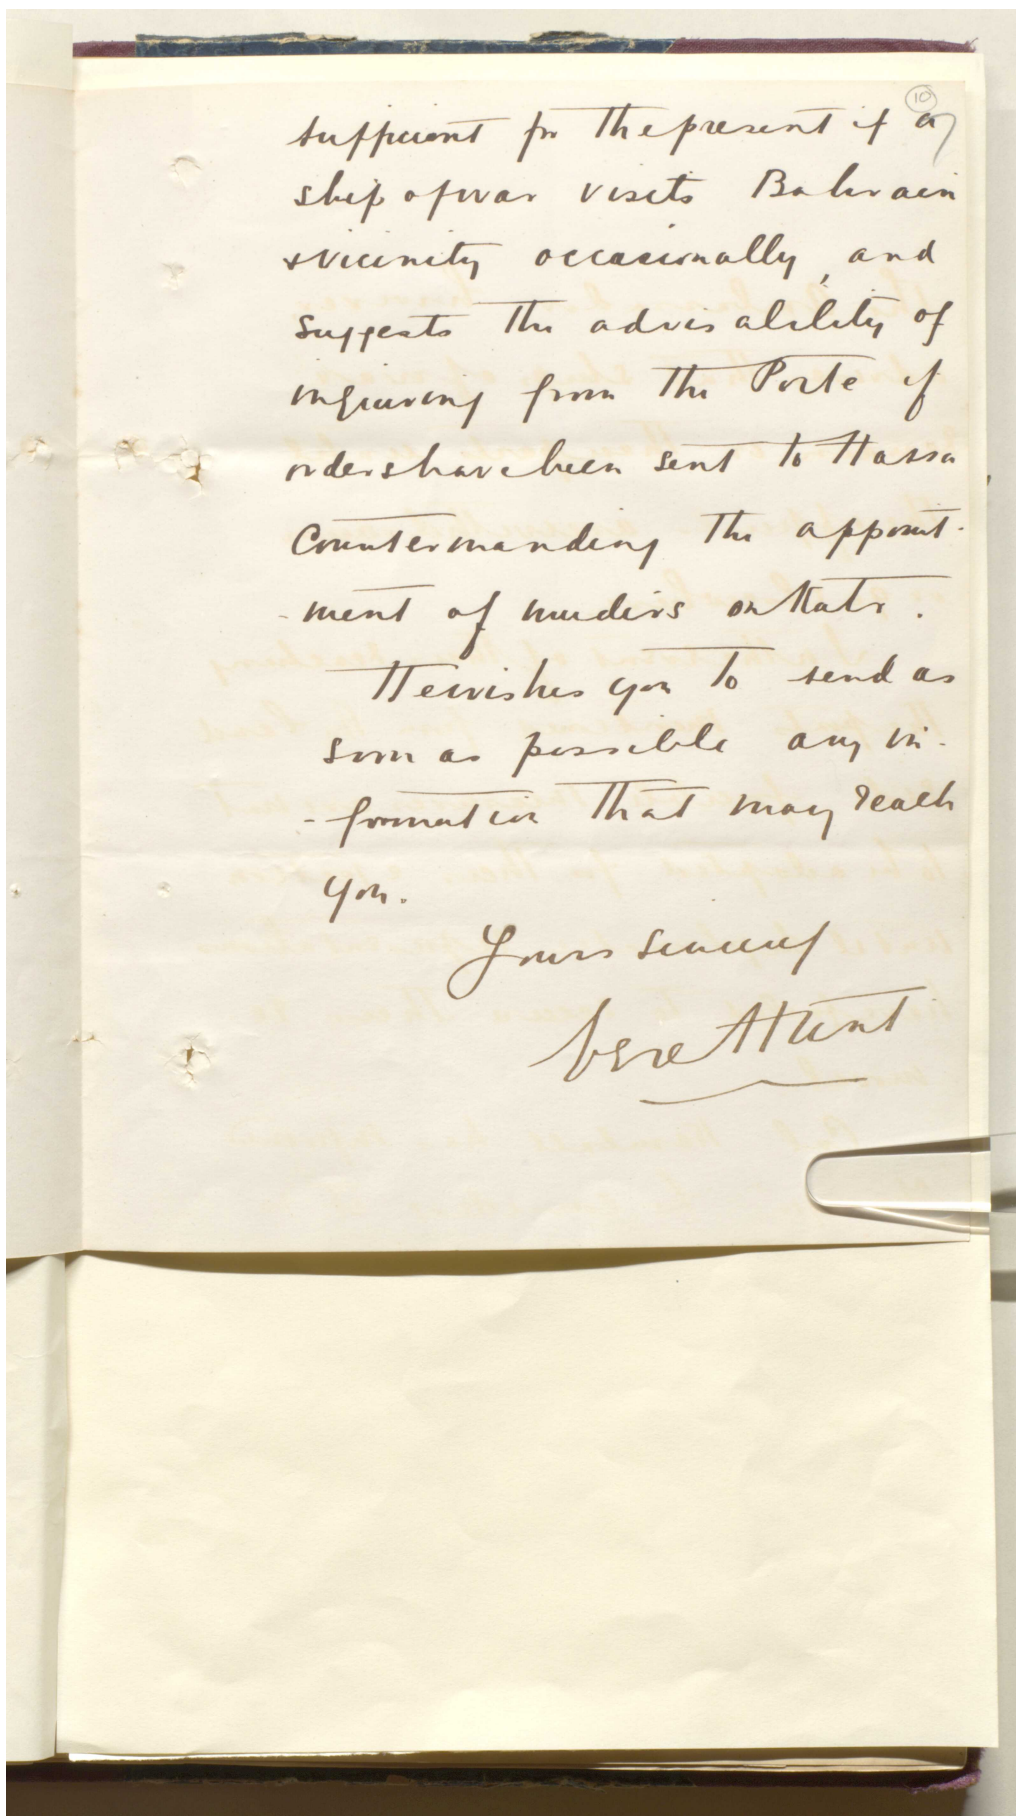 10
sufficient for the present if a
ship of war visits Bahrain
& vicinity occasionally, and
suggests the advisability of
inquiring from the Porte if
orders have been sent to Hassa
countermanding the appoint-
-ment of mudirs on Katr.
He wishes you to send as
soon as possible any in-
-formation that may reach
you.
Yours sincerely
Vere Hunt